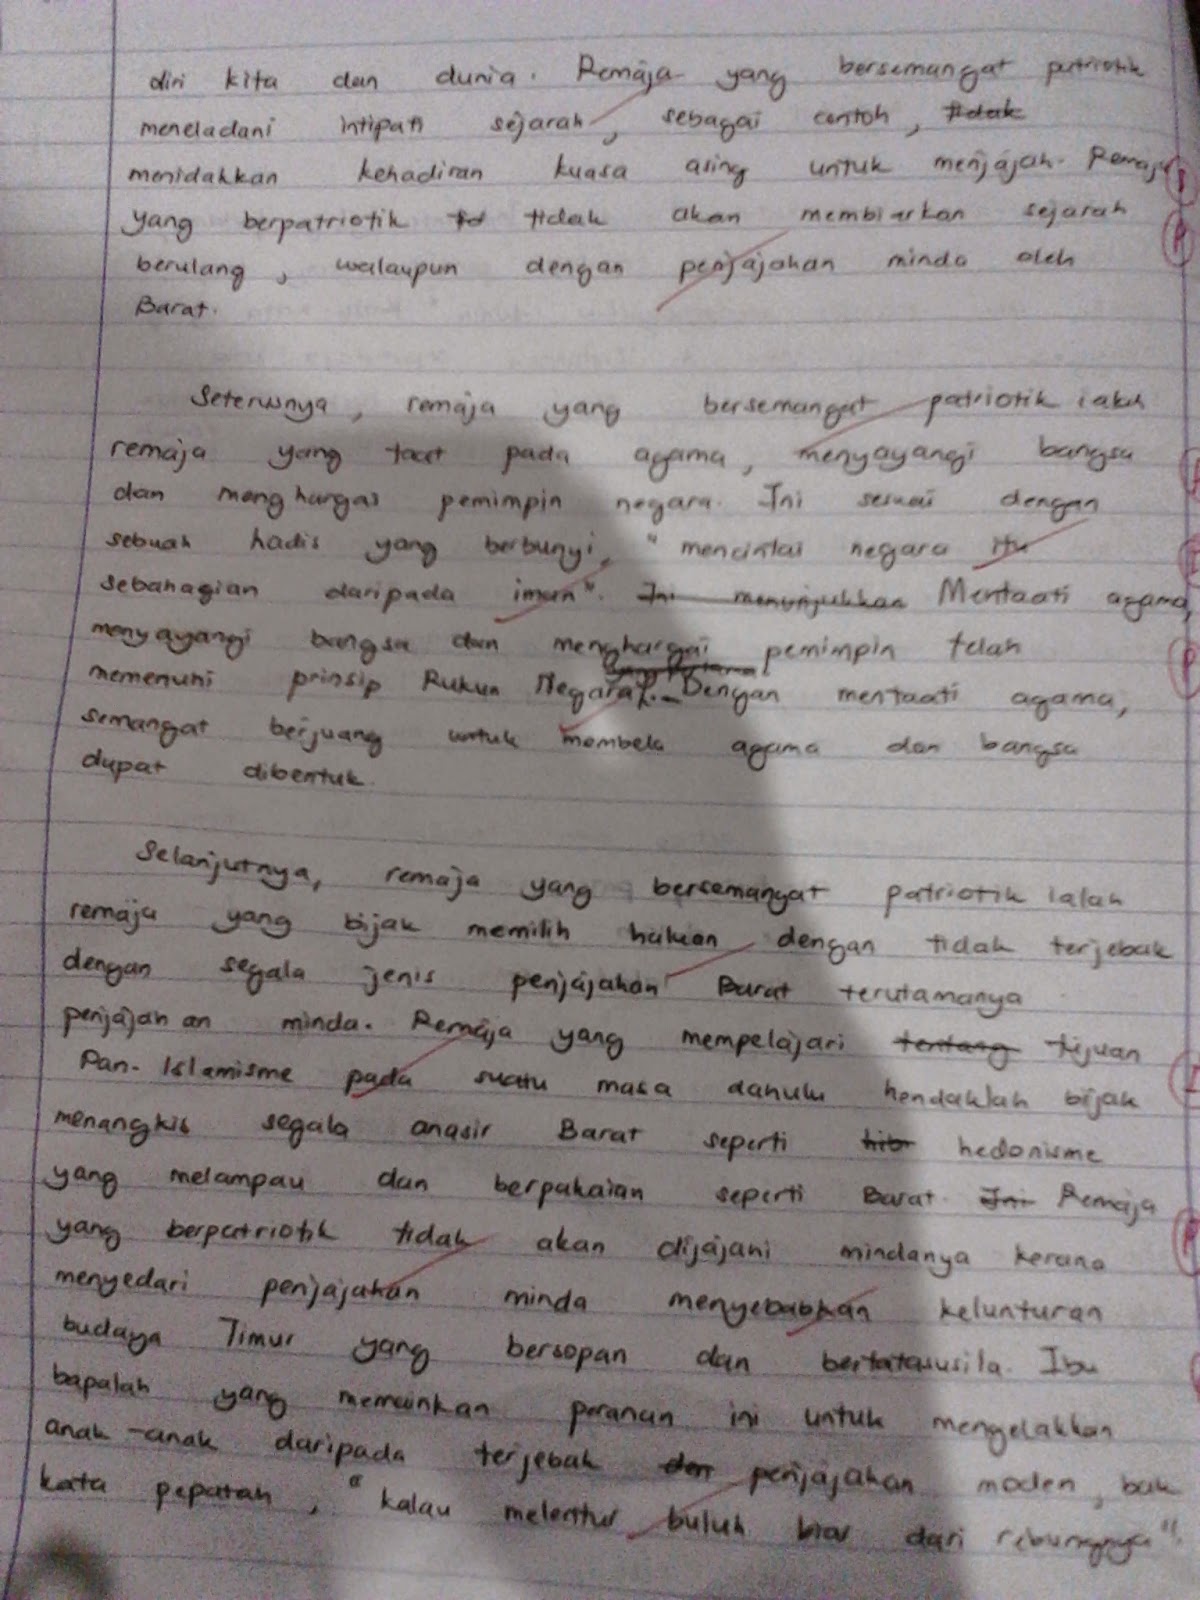 diri kita dan dunia. Remaja yang bersemangat patriotik
meneladani intipati sejarah, sebagai contoh, tidak
menidakkan kehadiran kuasa asing untuk menjajah. Remaja
yang berpatriotik td tidak akan membiarkan sejarah
berulang, walaupun dengan penjajahan minda oleh
Barat.
Seterusnya, remaja yang bersemangat patriotik ialah
remaja yang taat pada agama, menyayangi bangsa
dan menghargai pemimpin negara. Ini sesuai dengan
sebuah hadis yang berbunyi, "mencintai negara itu
sebahagian daripada iman". Ini menunjukkan Mentaati agama,
menyayangi bangsa dan menghargai pemimpin telah
memenuhi prinsip Rukun Negara. Dengan mentaati agama,
semangat berjuang untuk membela agama dan bangsa
dapat dibentuk.
Selanjutnya, remaja yang bersemangat patriotik ialah
remaja yang bijak memilih haluan dengan tidak terjebak
dengan segala jenis penjajahan Barat terutamanya
penjajahan minda. Remaja yang mempelajari tentang tujuan
Pan-Islamisme pada suatu masa dahulu hendaklah bijak
menangkis segala anasir Barat seperti hedonisme
yang melampau dan berpakaian seperti Barat. Ini Remaja
yang berpatriotik tidak akan dijajani mindanya kerana
menyedari penjajahan minda menyebabkan kelunturan
budaya Timur yang bersopan dan bertatasusila. Ibu
bapalah yang memainkan peranan ini untuk mengelakkan
anak-anak daripada terjebak dan penjajahan moden, bak
kata pepatah, "kalau melentur buluh biar dari rebungnya".